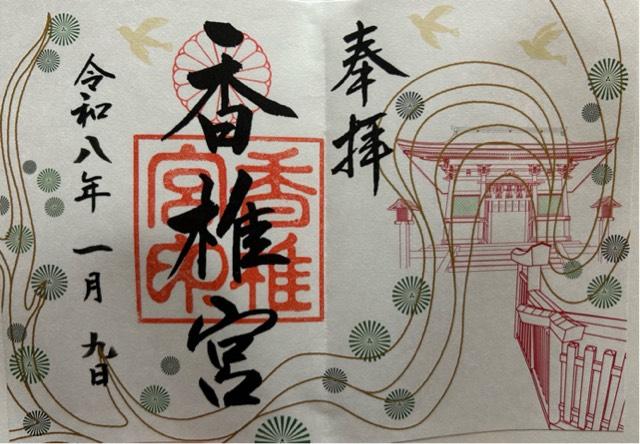 奉拝
香椎宮
香椎宮印
令和八年一月九日